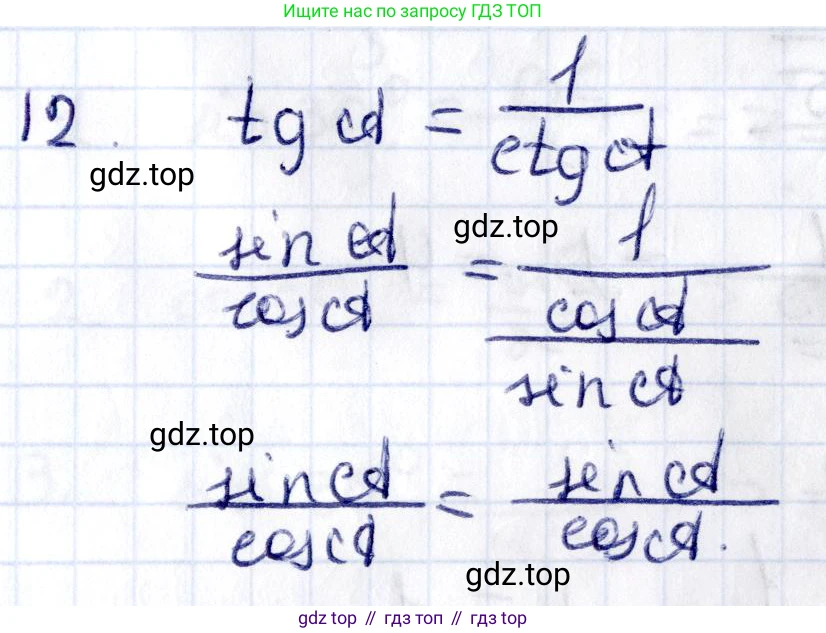 Ищите нас по запросу ГДЗ ТОП
12. tg α = 1/ctg α
gdz.top
sin α/cos α = 1/(cos α/sin α)
gdz.top
gdz.top
sin α/cos α = sin α/cos α.
gdz.top
gdz top // гдз топ // gdz top